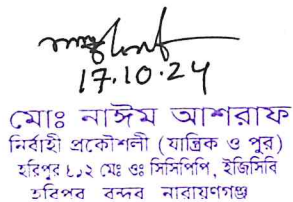 17.10.24
মোঃ নাঈম আশরাফ
নির্বাহী প্রকৌশলী (যান্ত্রিক ও পুর)
হরিপুর ৪১২ মেঃ ওঃ সিসিপিপি, ইজিসিবি
হরিপুর বন্দর নারায়ণগঞ্জ